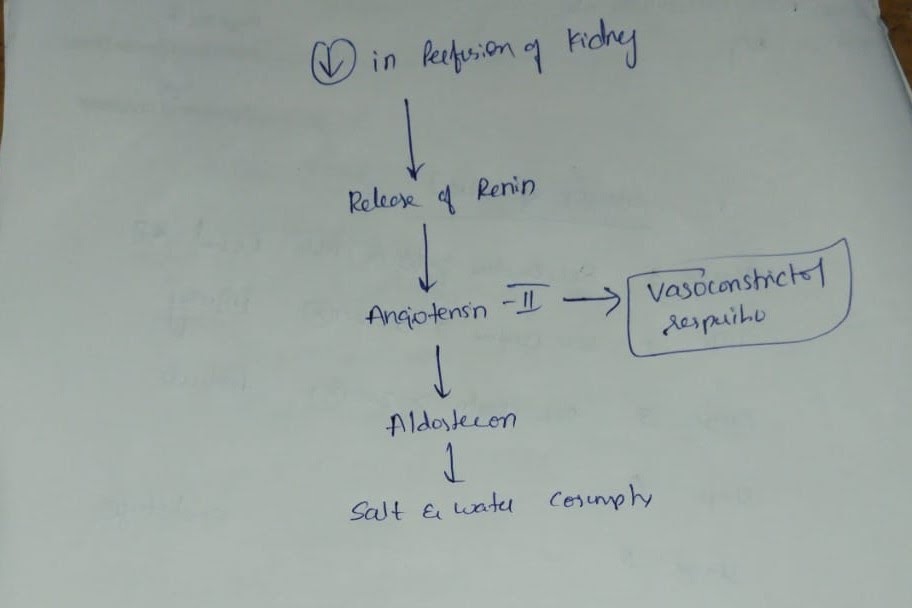 ↓ in Perfusion of Kidney
Release of Renin
Angiotensin - II → Vasoconstrictor
Aldosteron
Salt & water